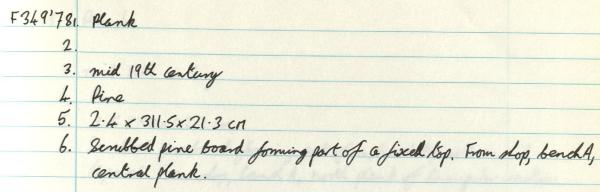 F349'78 1. Plank
2.
3. mid 19th century
4. Pine
5. 2.4 x 311.5 x 21.3 cm
6. Scrubbed pine board forming part of a fixed top. From shop, bench A,
central plank.